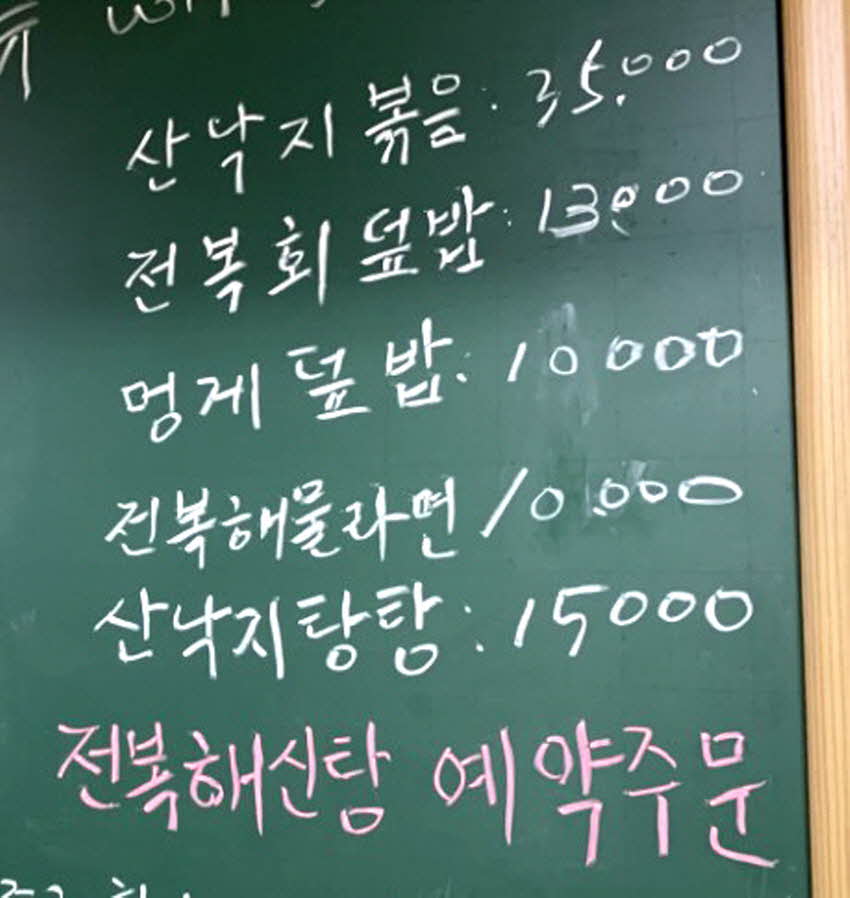 산낙지 볶음: 35.000
전복회 덮밥: 13000
멍게 덮밥: 10000
전복해물라면 10.000
산낙지탕탕: 15000
전복해신탕 예약주문